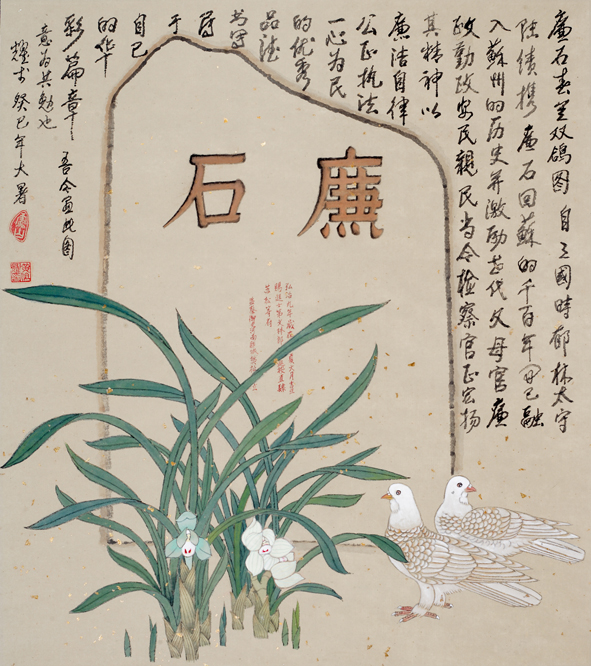 廉石春兰双鸽图 自三國時郁林太守
陸績携廉石回蘇的千百年里已融
入蘇州的历史并激励歷代父母官廉
政勤政安民親民当今检察官正宏扬
其精神以
廉洁自律
公正执法
一心为民
的优秀
品德
书写
属
于
自己
的华
彩篇章 吾今画此图
意为共勉也
癸巳年大暑
廉石
弘治九年歲在